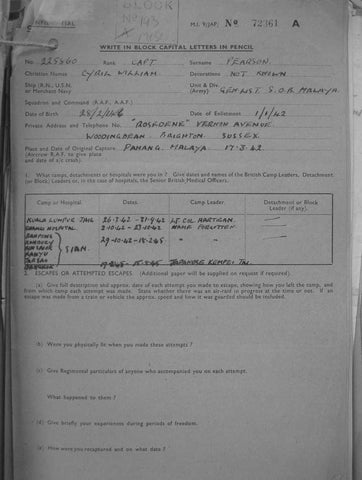 BLOCK
No 143
CONFIDENTIAL M.I. 9/JAP/ No 72361 A
WRITE IN BLOCK CAPITAL LETTERS IN PENCIL
No. 225560 Rank CAPT Surname PEARSON.
Christian Names CYRIL WILLIAM. Decorations NOT KNOWN
Ship (R.N., U.S.N. or Merchant Navy) Unit & Div. (Army) GEN LIST S.O.E. MALAYA.
Squadron and Command (R.A.F. A.A.F.)
Date of Birth Date of Enlistment 1/1/42
Private Address and Telephone No. "ROSEDENE" VERNON AVENUE.
WOODINGDEAN. BRIGHTON. SUSSEX.
Place and Date of Original Capture PAHANG. MALAYA. 17.3.42
(Aircrew R.A.F. to give place and date of a/c crash).
1. What camps, detachments or hospitals were you in? Give dates and names of the British Camp Leaders, Detachment (or Block) Leaders or, in the case of hospitals, the Senior British Medical Officers.
Camp or Hospital Dates Camp Leader Detachment or Block Leader (if any).
KUALA LUMPUR JAIL 26.3.42 - 31.9.42 LT. COL HARTIGAN.
HOSPITAL 2.10.42 - 23.10.42 NAME FORGOTTEN
BANPONG
SIAM. 29.10.42 -
KANYU
JAPANESE KEMPEI TAI.
2. ESCAPES OR ATTEMPTED ESCAPES. (Additional paper will be supplied on request if required).
(a) Give full description and approx. date of each attempt you made to escape, showing how you left the camp, and from which camp each attempt was made. State whether there was an air-raid in progress at the time or not. If an escape was made from a train or vehicle the approx. speed and how it was guarded should be included.
(b) Were you physically fit when you made these attempts?
(c) Give Regimental particulars of anyone who accompanied you on each attempt.
What happened to them?
(d) Give briefly your experiences during periods of freedom.
(e) How were you recaptured and on what date?